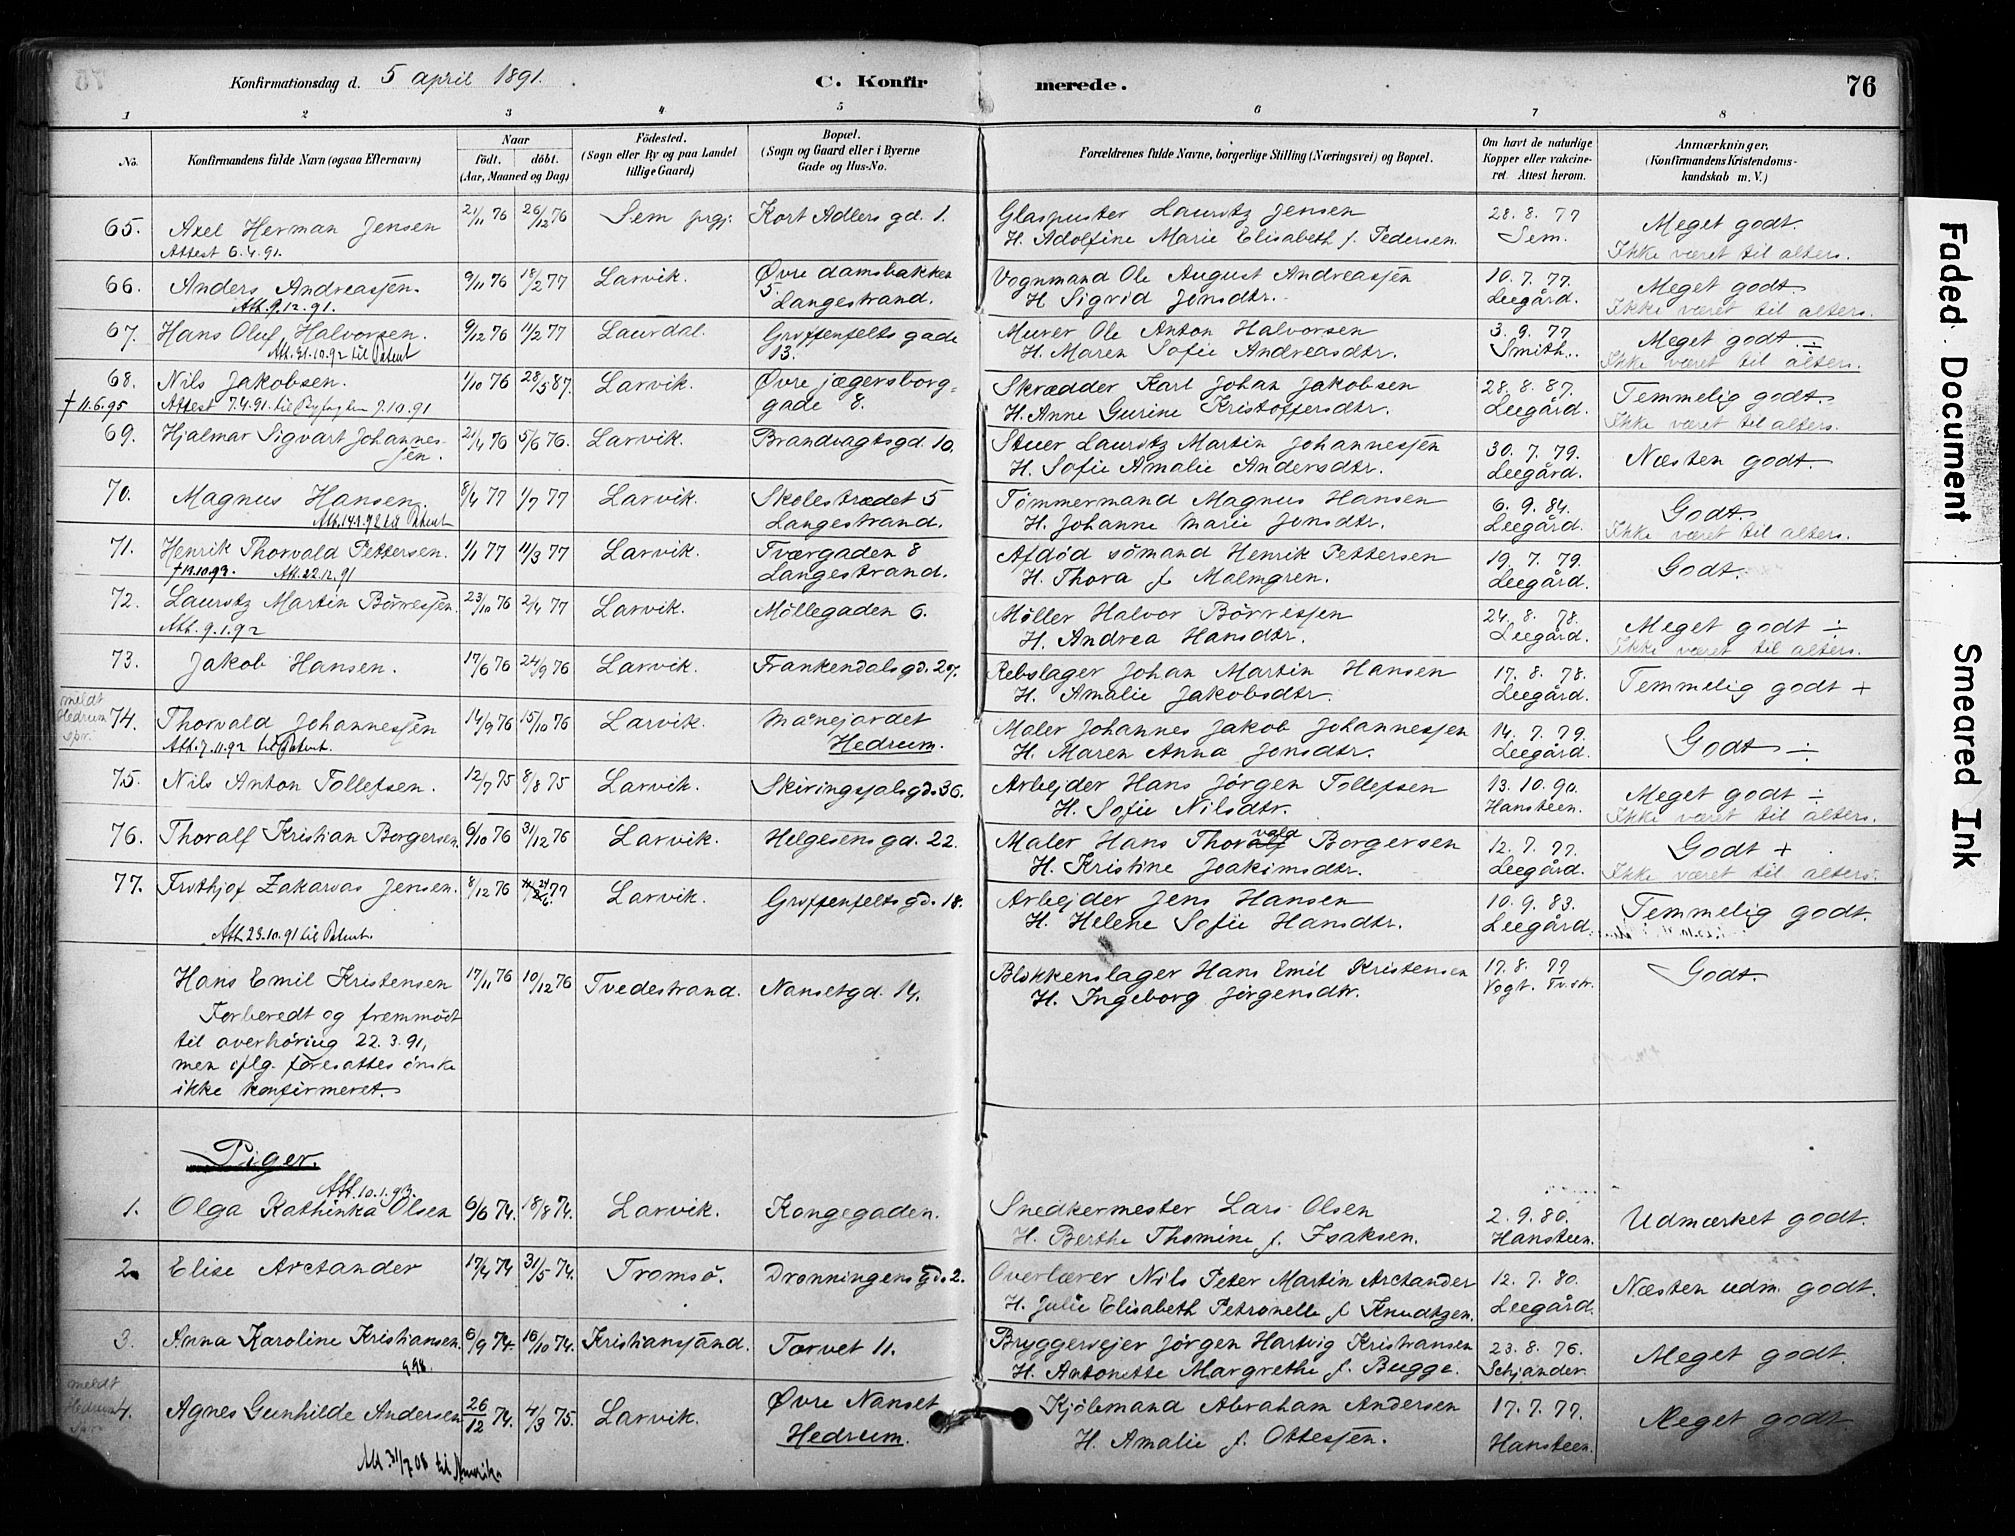 Konfirmationsdag d. 5 april 1891.
C. Konfirmerede.
76
1 2 3 4 5 6 7 8
No.
Konfirmandens fulde Navn (ogsaa Efternavn)
Naar
födt. döbt.
(Aar, Maaned og Dag)
Födested.
(Sogn eller By og paa Landet
tillige Gaard)
Bopæl.
(Sogn og Gaard eller i Byerne
Gade og Hus-No.
Forældrenes fulde Navne, borgerlige Stilling (Næringsvei) og Bopæl.
Om havt de naturlige
Kopper eller vakcine-
ret. Attest herom.
Anmærkninger.
(Konfirmandens Kristendoms-
kundskab m. V.)
65. Axel Herman Jensen 21/11 76 26/12 76 Sem prgj. Kort Adlers gd. 1. Glaspuster Lauritz Jensen 28. 8. 77 Meget godt.
Attest 6.4.91. H. Adolfine Marie Elisabeth f. Pedersen. Sem. Ikke været til alters.
66. Anders Andreassen. 9/11 76 18/2 77 Larvik. Øvre damsbakken Vognmand Ole August Andreassen 10. 7. 77. Meget godt.
Att. 9.12.91. 5 Langestrand. H. Sigrid Jonsdtr. Leegård. Ikke været til alters.
67. Hans Oluf Halvorsen. 9/12 76 11/2 77 Laurdal. Griffenfelts gade Murer Ole Anton Halvorsen 3. 9. 77 Meget godt. ÷
Att. 21.10.92 til Patent 13. H. Maren Sofie Andreasdtr. Smith. Ikke været til alters.
68. Nils Jakobsen. 1/10 76 28/5 87. Larvik. Øvre jægersborg- Skrædder Karl Johan Jakobsen 28. 8. 87. Temmelig godt.
† 11.6.95 Attest 7.4.91. til Byfogden 7.10.91 gade 8. H. Anne Gurine Kristoffersdtr. Leegård. Ikke været til alters.
69. Hjalmar Sigvart Johannes- 21/4 76 5/6 76. Larvik. Brandvagtsgd. 10. Stuer Lauritz Martin Johannessen 30. 7. 79. Næsten godt.
sen. H. Sofie Amalie Andersdtr. Leegård.
70. Magnus Hansen 8/4 77 1/7 77 Larvik. Skolestrædet 5 Tømmermand Magnus Hansen 6. 9. 84. Godt.
Att. 14.1.92 til Patent Langestrand. H. Johanne Marie Jonsdtr. Leegård. Ikke været til alters.
71. Henrik Thorvald Pettersen. 1/1 77 11/3 77 Larvik. Tværgaden 8 Afdød sømand Henrik Pettersen 19. 7. 79. Godt.
Att. 22.12.91 Langestrand. H. Thora f. Malmgren. Leegård.
72. Lauritz Martin Børresen 23/10 76 2/4 77 Larvik. Møllegaden 6. Møller Halvor Børresen 24. 8. 78. Meget godt ÷
Att. 9.1.92 H. Andrea Hansdtr. Leegård. Ikke været til alters.
73. Jakob Hansen. 17/6 76 24/9 76 Larvik. Frankendalsgd. 27. Rebslager Johan Martin Hansen 17. 8. 78. Temmelig godt +
H. Amalie Jakobsdtr. Leegård.
meldt
Hedrum
spr.
74. Thorvald Johannessen 14/9 76 15/10 76 Larvik. Månejordet Maler Johannes Jakob Johannessen 14. 7. 79. Godt ÷
Att. 7.11.92 til Patent. Hedrum. H. Maren Anna Jonsdtr. Leegård.
75. Nils Anton Tollefsen. 12/7 75 8/8 75 Larvik. Skiringssalsgd. 36. Arbejder Hans Jørgen Tollefsen 13. 10. 90. Meget godt ÷
H. Sofie Nilsdtr. Hansteen. Ikke været til alters.
76. Thoralf Kristian Borgersen. 6/10 76 31/12 76 Larvik. Helgesens gd. 22. Maler Hans Thorvald Borgersen 12. 7. 77. Godt +
H. Kristine Joakimsdtr. Leegård. Ikke været til alters.
77. Frithjof Zakarias Jensen. 8/12 76 24/ 77 Larvik. Griffenfelts gd. 18. Arbejder Jens Hansen 10. 9. 83. Temmelig godt.
Att. 23.10.91 til Patent. H. Helene Sofie Hansdtr. Leegård.
Hans Emil Kristensen 17/11 76 10/12 76 Tvedestrand. Nansetgd. 14. Blokkenslager Hans Emil Kristensen 17. 8. 77 Godt.
Forberedt og fremmødt H. Ingeborg Jørgensdtr. Vogt. Tv.str.
til overhøring 22.3.91,
men iflg. foresattes ønske
ikke konfirmeret.
Piger.
Att. 10.1.93.
1. Olga Kathinka Olsen 6/6 74. 18/8 74. Larvik. Kongegaden. Snedkermester Lars Olsen 2. 9. 80. Udmærket godt.
H. Berthe Thomine f. Isaksen. Hansteen.
2. Elise Arctander 17/4 74 31/5 74. Tromsø. Dronningens gd. 2. Overlærer Nils Peter Martin Arctander 12. 7. 80. Næsten udm. godt.
H. Julie Elisabeth Petronelle f. Knudtzen. Leegård.
3. Anna Karoline Kristiansen. 6/9 74. 16/10 74. Kristianssand. Torvet 11. Bryggervejer Jørgen Hartvig Kristiansen 23. 8. 76. Meget godt.
H. Antonette Margrethe f. Bugge. Schjander.
meldt
Hedrum
spr.
4. Agnes Gunhilde Andersen 26/12 74. 4/3 75. Larvik. Øvre Nanset Kjølemand Abraham Andersen 17. 7. 77. Meget godt.
Hedrum. H. Amalie f. Ottesen. Hansteen.
Att. 31/7 08 til Amerika
Faded Document
Smeared Ink